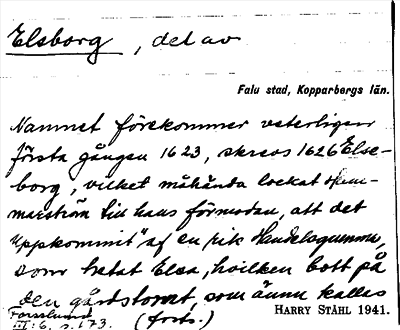 Elsborg, del av
Falu stad, Kopparbergs län.
Namnet förekommer veterligen
första gången 1623, skrevs 1626 Else-
borg, vilket måhända lockat Ham-
marström till hans förmodan, att det
"uppkommit" af en rik Handelsgumma,
som hetat Elsa, hvilken bott på
den gårdstomt, som ännu kallas
Forsslund
III:6, s. 173. (forts.)
HARRY STÅHL 1941.